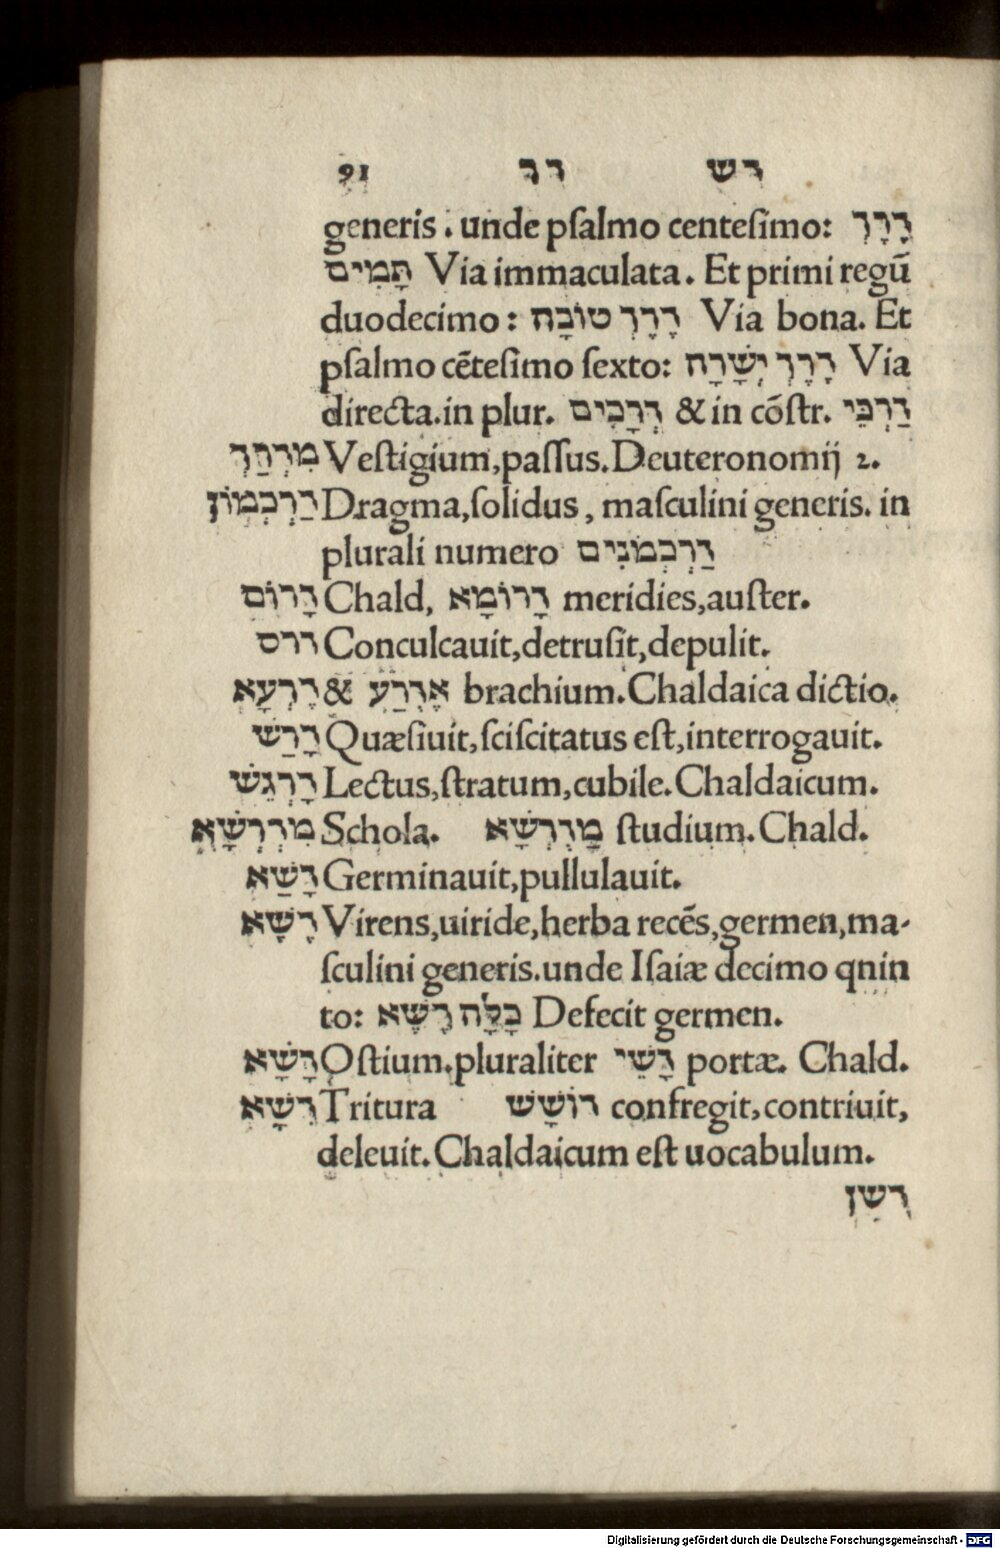 91 דך דש
generis. unde pſalmo centeſimo: דֶרֶךְ
תָּמִים Via immaculata. Et primi regū
duodecimo: דֶרֶךְ טוֹבָה Via bona. Et
pſalmo cētefimo ſexto: דֶרֶךְ יְשָׁרָה Via
directa. in plur. דְּרָכִים & in cōſtr. דַּרְכֵי
מִדְרַךְ Veſtigium, paſſus. Deuteronomij 2.
דַּרְכְּמוֹן Dragma, ſolidus, maſculini generis. in
plurali numero דַּרְכְּמֹנִים
דָּרוֹם Chald, דָּרוֹמָא meridies, auſter.
דרס Conculcauit, detruſit, depulit.
דְּרָעָא & אֶדְרַע brachium. Chaldaica dictio.
דָּרַשׁ Quæſiuit, ſciſcitatus eſt, interrogauit.
דַּרְגֵשׁ Lectus, ſtratum, cubile. Chaldaicum.
מִדְרְשָׁא Schola. מֶדְרְשָׁא ſtudium. Chald.
דָּשַׁא Germinauit, pullulauit.
דֶּשֶׁא Virens, uiride, herba recēs, germen, ma-
ſculini generis. unde Iſaiæ decimo qnin
to: כָּלָה דֶשֶׁא Defecit germen.
דָּשָׁא Oſtium. pluraliter דָּשֵׁי portæ. Chald.
דִּישָׁא Tritura דוֹשֵׁשׁ confregit, contriuit,
deleuit. Chaldaicum eſt uocabulum.
דֶּשֶׁן
Digitalisierung gefördert durch die Deutsche Forschungsgemeinschaft - DFG